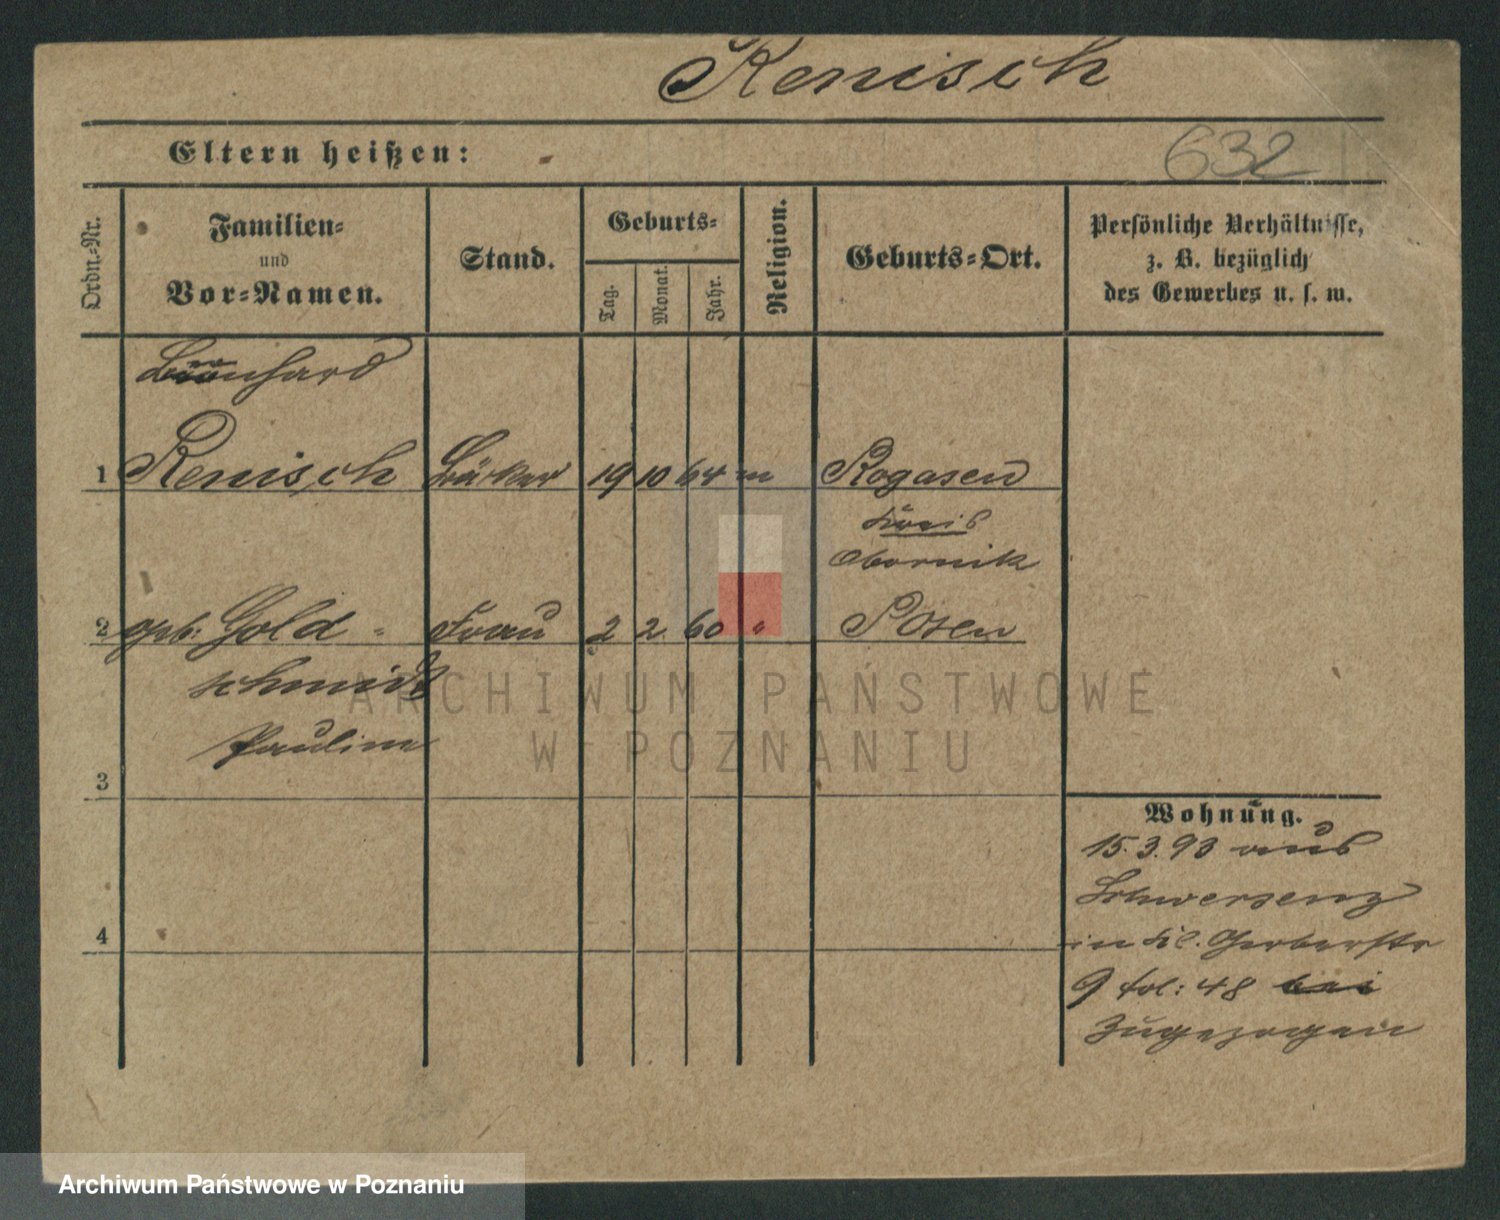 Renisch
Eltern heißen:
632
Ordn.-Nr.
Familien-
und
Vor-Namen.
Stand.
Geburts-
Tag.
Monat.
Jahr.
Religion.
Geburts-Ort.
Persönliche Verhältnisse,
z. B. bezüglich
des Gewerbes u. s. w.
1 Renisch Bäcker 19 10 64 m Rogasen
Kreis
Obornik
2 geb: Gold- Frau 2 2 60 " Posen
schmidt
Pauline
3
4
Wohnung.
15.3.93 aus
Schwersenz
in Kl. Gerberstr
9 fol: 48 bei
Zugezogen
ARCHIWUM PAŃSTWOWE
W POZNANIU
Archiwum Państwowe w Poznaniu